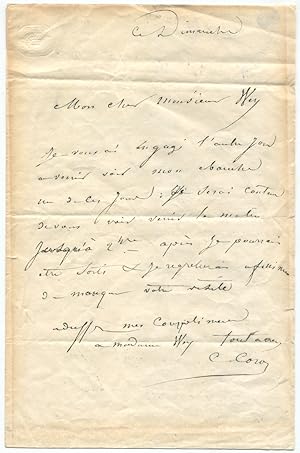 Ce Dimanche
Mon cher monsieur Wey
Je vous ai engagé l'autre jour
a venir voir mon ébauche
un de ces jours; Je serai content
de vous voir venir le matin
jusqu'à 2 h après je pourrai
être sorti & je regretterai
de manquer votre visite
mes compliments
a madame Wey tout a vous
C. Corot